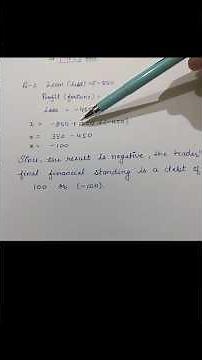 Q-2 Loan (debt) = -850
Profit (fortune) =
Loss = -45
x = -850 + 1200 + (-450)
x = 350 - 450
x = -100
Since, the result is negative, the trader's
final financial standing is a debt of
100 Rs (-100).